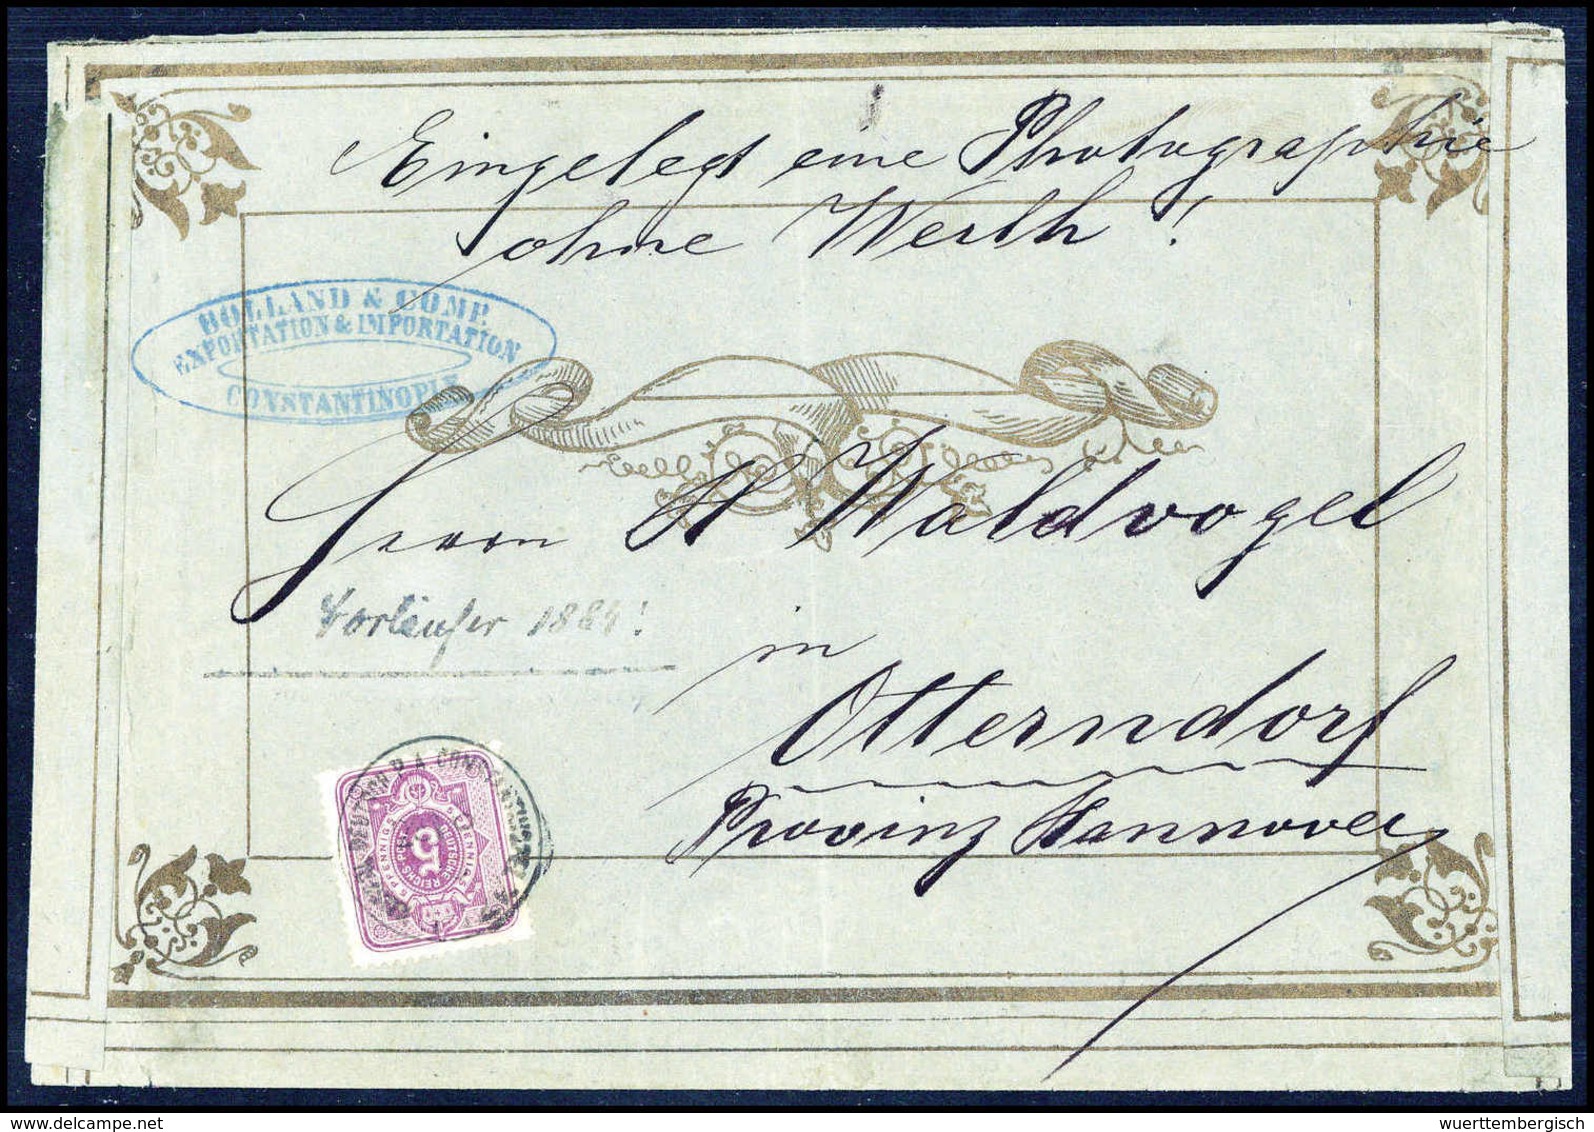 Eingelegt eine Photographie
ohne Werth!
BOLLAND & COMP.
EXPORTATION & IMPORTATION
CONSTANTINOPLE
Herrn H Waldvogel
Vorläufer 1884!
in
Otterndorf
Provinz Hannover
DEUTSCH P. A. CONSTANTINOPEL
5 PFENNIG 5
5 PFENNIG 5
DEUTSCHE REICHS-POST
5
© delcampe.net
wuerttembergisch